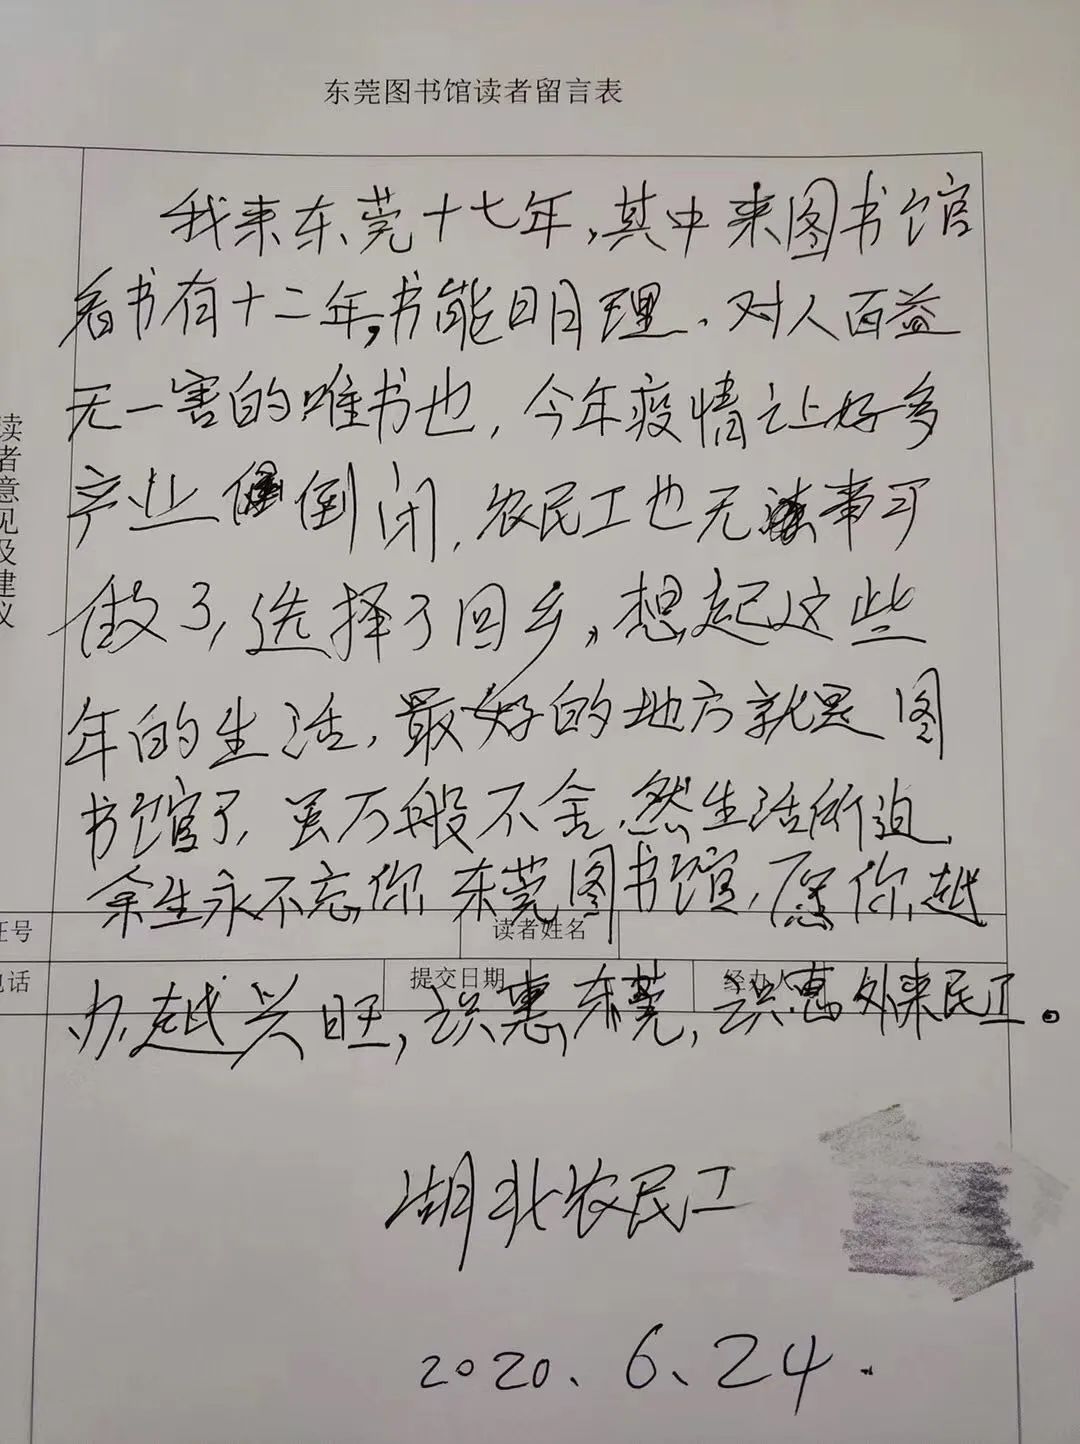 东莞图书馆读者留言表
我来东莞十七年,其中来图书馆
看书有十二年,书能明理、对人百益
无一害的唯书也,今年疫情让好多
产业倒闭,农民工也无事可
做了,选择了回乡,想起这些
年的生活,最好的地方就是图
书馆了,虽万般不舍,然生活所迫,
余生永不忘你,东莞图书馆,愿你越
办越兴旺,识惠东莞,识惠外来民工。
湖北农民工
2020、6、24.
读者意见及建议
证号
读者姓名
电话
提交日期
经办人